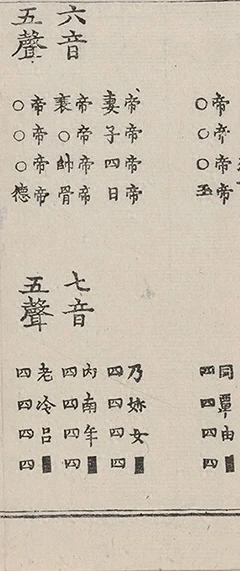 六音
五聲
帝帝帝帝
○○○玉
帝帝帝帝
妻子四日
帝帝帝帝
衰○帥骨
帝帝帝帝
○○○德
七音
五聲
同覃由■
四四四四
乃妳女■
四四四四
內南年■
四四四四
老冷呂■
四四四四